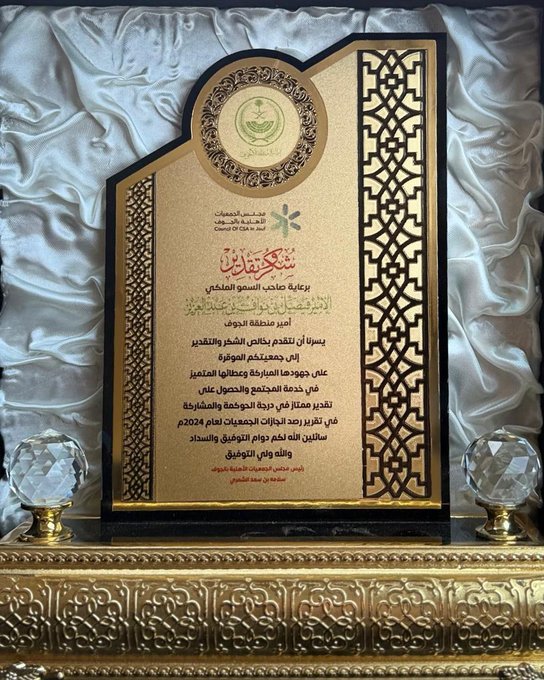 مجلس الجمعيات
الأهلية بالجوف
Council Of CSA in Jouf
شكر وتقدير
برعاية صاحب السمو الملكي
الأمير فيصل بن نواف بن عبدالعزيز
أمير منطقة الجوف
يسرنا أن نتقدم بخالص الشكر والتقدير
إلى جمعيتكم الموقرة
على جهودها المباركة وعطائها المتميز
في خدمة المجتمع والحصول على
تقدير ممتاز في درجة الحوكمة والمشاركة
في تقرير رصد انجازات الجمعيات لعام 2024م
سائلين الله لكم دوام التوفيق والسداد
والله ولي التوفيق
رئيس مجلس الجمعيات الأهلية بالجوف
سلامه بن سعد الشمري